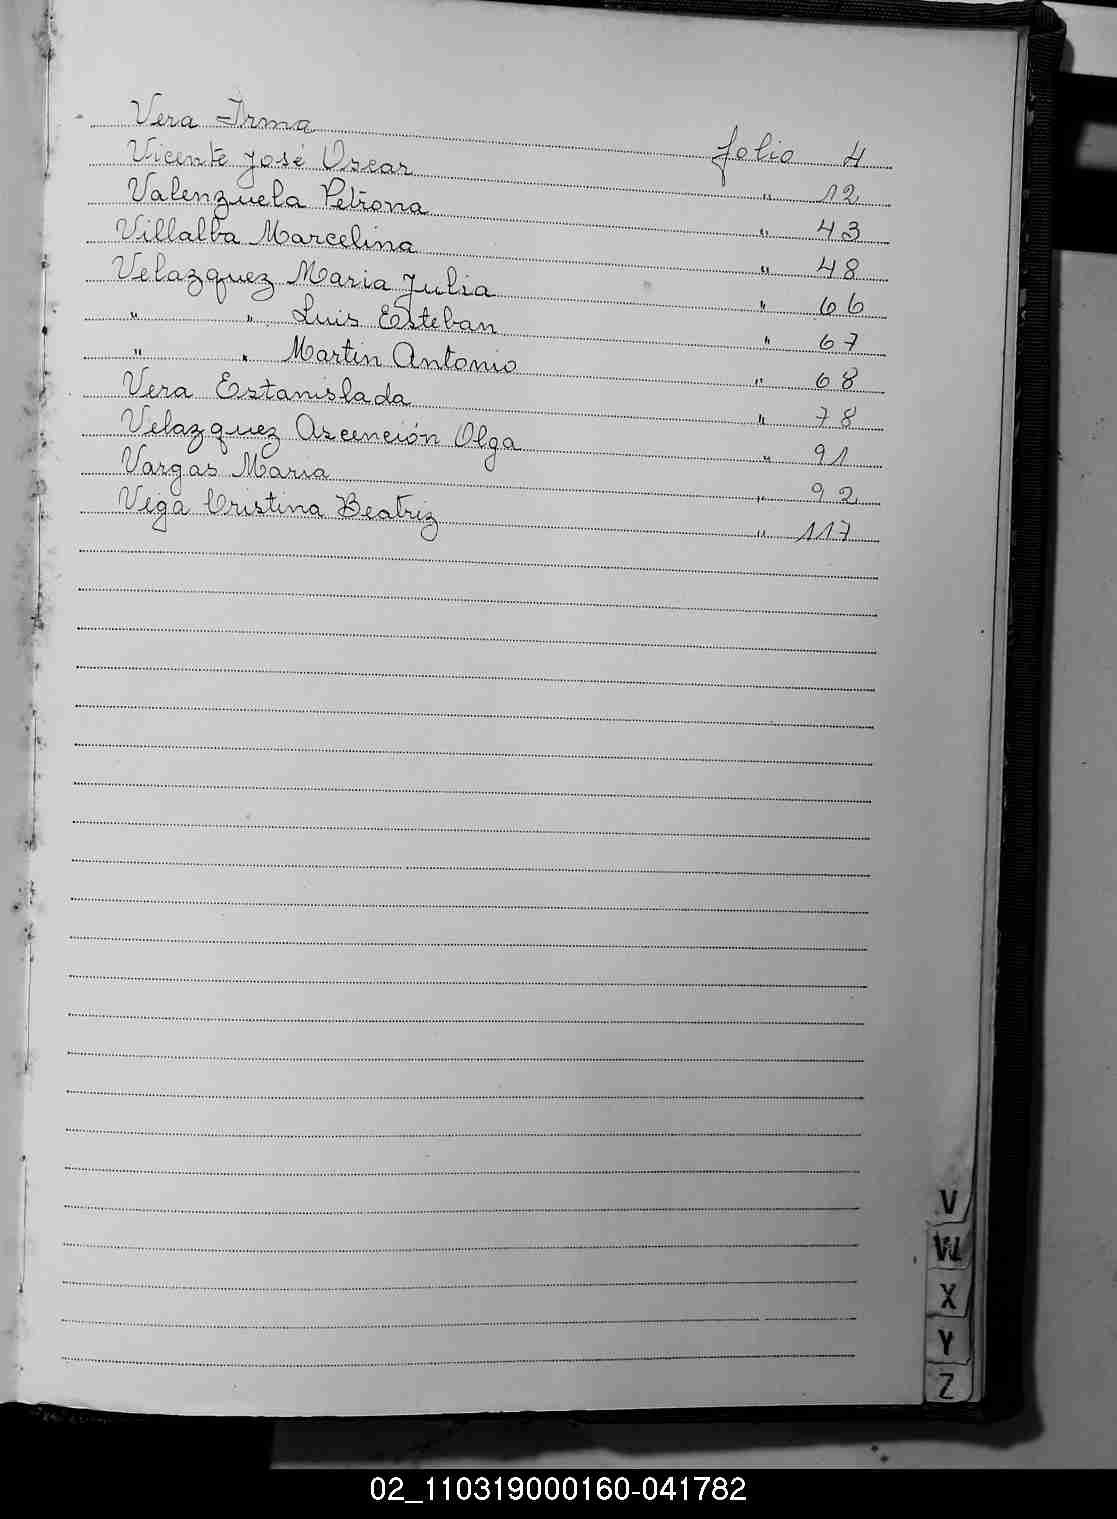 Vera Irma folio 4
Vicente José Oscar " 12
Valenzuela Petrona " 43
Villalba Marcelina " 48
Velazquez Maria Julia " 66
" " Luis Esteban " 67
" " Martin Antonio " 68
Vera Estanislada " 78
Velazquez Ascención Olga " 91
Vargas Maria " 92
Vega Cristina Beatriz " 117
V
W
X
Y
Z
02_110319000160-041782